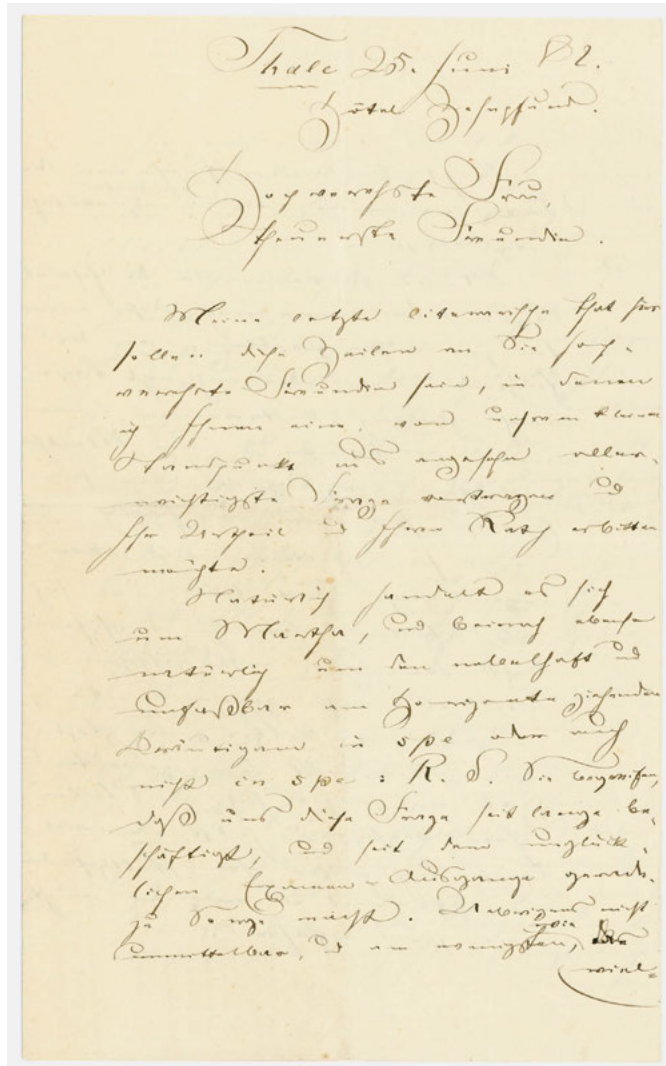 Thale 25. Juni 82.
Hôtel Zehnpfund.
Hochverehrteste Frau,
theuerste Freundin.
Meine letzte literarische That hier
sollen diese Zeilen an Sie hoch-
verehrte Freundin sein, in denen
ich Ihnen eine, vom unsrem kleinen
Standpunkt aus angesehn aller-
wichtigste Frage vortragen und
Ihr Urtheil und Ihren Rath erbitten
möchte.
Natürlich handelt es sich
um Martha, und beinah ebenso
natürlich um den nebelhaft und
unfaßbar am Horizonte ziehenden
Bräutigam in spe oder auch
nicht in spe: R. S. Sie begreifen,
daß uns diese Frage seit lange be-
schäftigt, und seit dem unglück-
lichen Examen-Ausgange gerade-
zu Sorge macht. Uebrigens nicht
unmittelbar, und am wenigsten, wie
viel-